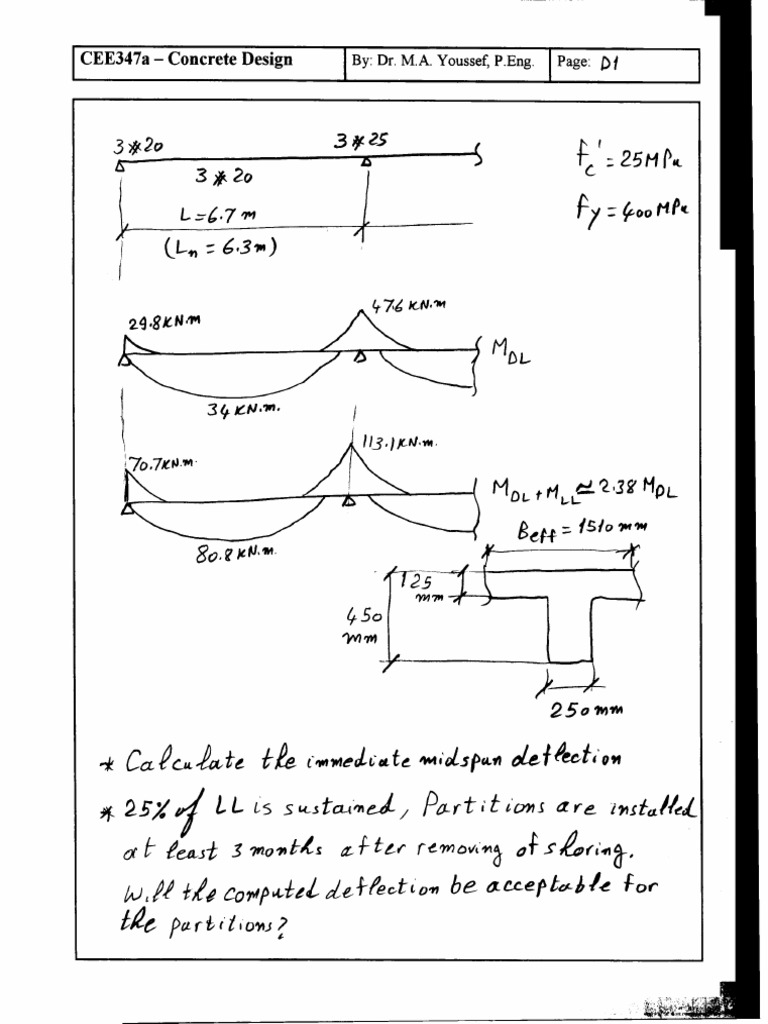 CEE347a – Concrete Design
By: Dr. M.A. Youssef, P.Eng.
Page: D1
3 # 20
3 # 25
3 # 20
L = 6.7 m
(Ln = 6.3 m)
fc' = 25 MPa
fy = 400 MPa
29.8 KN.m
47.6 KN.m
MDL
34 KN.m.
70.7 KN.m.
113.1 KN.m.
MDL + MLL ≃ 2.38 MDL
80.8 KN.m.
Beff = 1510 mm
125
mm
450
mm
250 mm
* Calculate the immediate midspan deflection
* 25% of LL is sustained, Partitions are installed
at least 3 months after removing of shoring.
Will the computed deflection be acceptable for
the partitions?